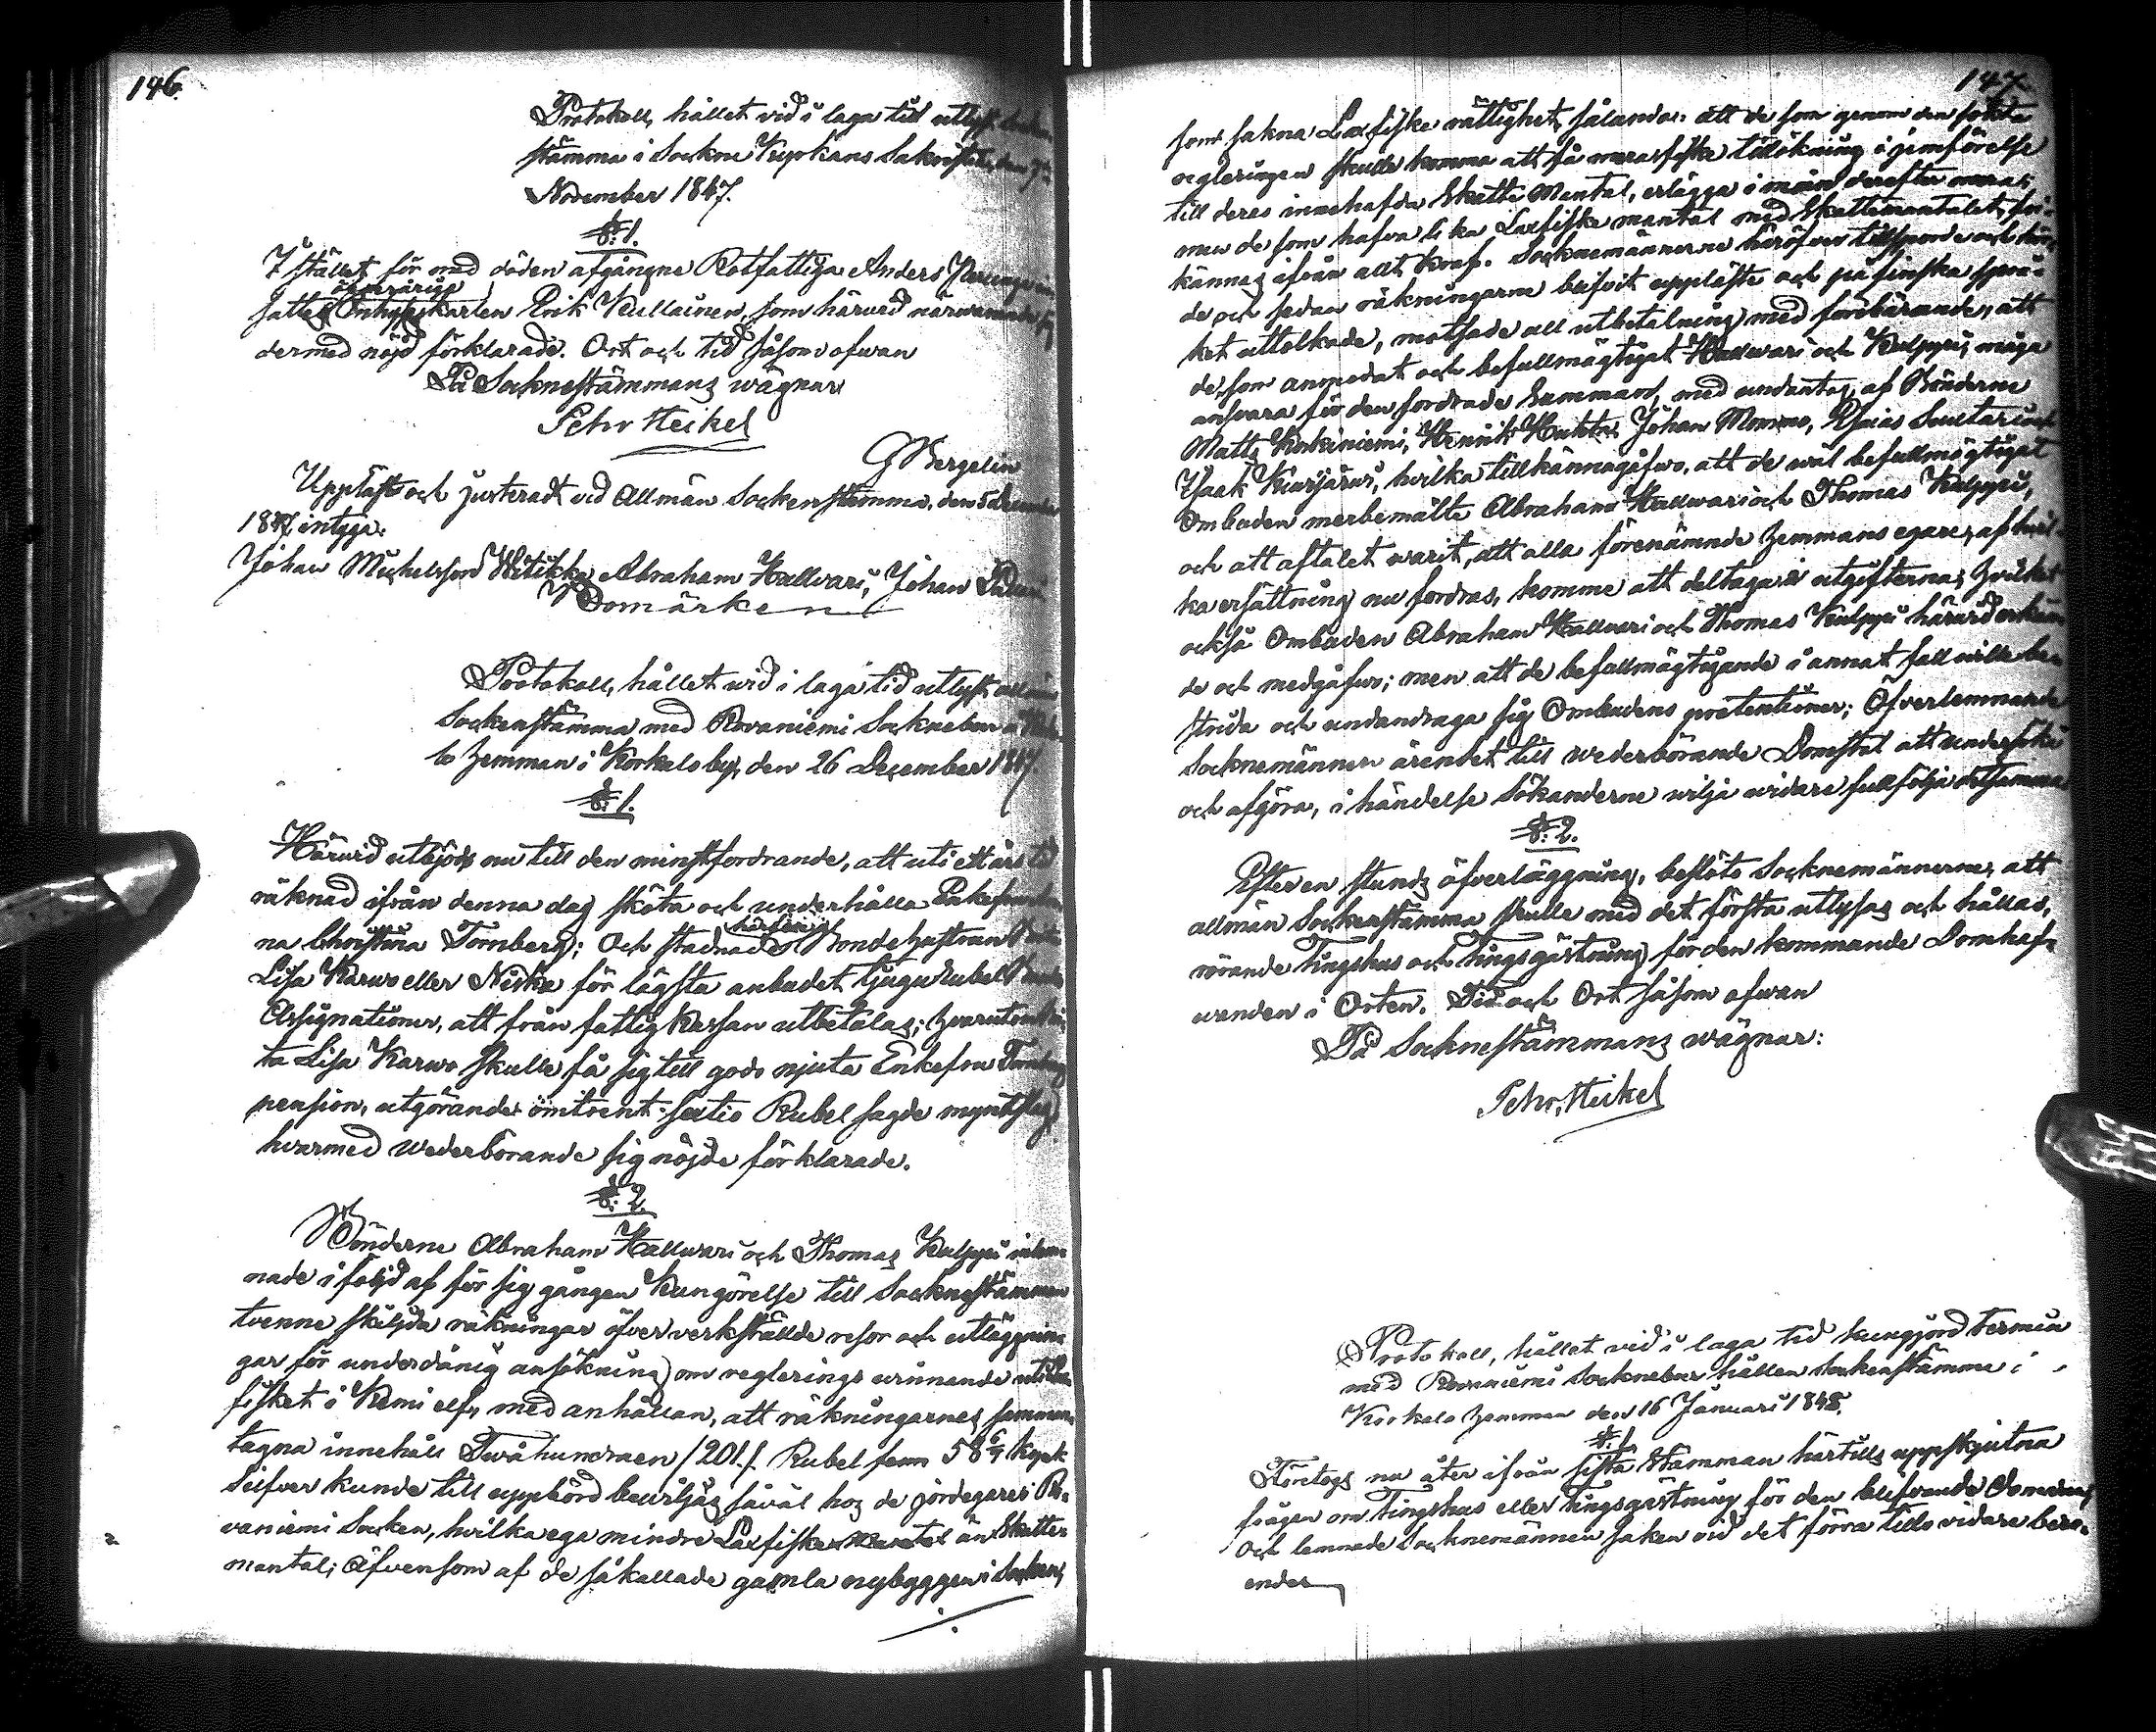 146.
Protokoll, hållet vid i laga tid utlyst Socken
stämma i Sockne Kyrkans Sakristia, den 7de
November 1847.
§: 1.
I stället för med döden afgångne Rotfattiga Anders
sattes Inhyses karlen Erik Kullainen, som härwid närwarande sig
dermed nöjd förklarade. Ort och tid såsom ofwan
På Socknestämmans wägnar
Pehr Heikel
G Bergelin
Uppläst och justeradt vid Allmän Sockenstämma, den 5 December
1847, intyga:
Johan Michelsson Hitikka, Abraham Hallwari, Johan
Bomärken
Protokoll, hållet wid i laga tid utlyst allmän
Sockenstämma med Rovaniemi Socknebor å
lo hemman i Korkalo by, den 26 December 1847.
§: 1.
Härwid utbjöds nu till den minstfordrande, att uti ett års tid
räknad ifrån denna dag sköta och underhålla Enkefru
na Christina Tornberg; Och stadnade härwid Bondehustrun
Lisa Karwo eller Niska för lägsta anbudet tjugu Rubel Banco
Assignationer, att från fattig Kassan utbetalas; hvarutom
ta Lisa Karwo skulle få sig till godo njuta Enkefru Tornbergs
pension, utgörande omtrent sextio Rubel sagde myntslag,
hvarmed Wederbörande sig nöjde förklarade.
§: 2.
Bönderne Abraham Hallwari och Thomas Kulppi inlem-
nade i följd af för sig gången Kungörelse till Socknestämman
tvenne skiljda räkningar öfver verkställde resor och utläggnin-
gar för underdånig ansökning om reglerings winnande uti Lax-
fisket i Kemi elf, med anhållan, att räkningarnes samman-
tagna innehåll Twåhundraen /201./. Rubel femn 58 6/7 Kopek
Silfver kunde till uppbörd bewiljas såväl hos de jordegare i Ro-
vaniemi Socken, hvilka ega mindre Laxfiske Mantal än Skatte-
mantal; Äfvensom af de såkallade gamla nybyggen i Socknen,
./.
147.
som sakna Laxfiske rättighet, sålunda: att de som genom den sökta
regleringen skulle komma att få mera fiske tillökning i jemförelse
till deras innehafda Skatte Mantal, erlägga i mån derefter mera;
men de som hafva lika Laxfiske mantal med Skattemantalet, fri-
kännas ifrån allt kraf. Socknemännerne häröfver tillsporde och hör-
de och sedan räkningarne blifvit uppläste och på finska språ-
ket uttolkade, motsade all utbetalning med förebärande, att
de som anmodat och befullmägtigat Hallwari och Kulppi, måga
answara för den fordrade Summan, med undantag af Bönderne
Matts Korkiniemi, Henrik Huhta, Johan Mommo, Esaias Suutari och
Isaak Kursjärwi, hvilka tillkännagåfwo, att de wäl befullmägtigat
Ombuden merbemälte Abraham Hallwari och Thomas Kulppi,
och att aftalet warit, att alla förenämnde hemmans egare, af hvil-
ka ersättning nu fordras, komme att deltaga i utgifterna; hvilket
också Ombuden Abraham Hallwari och Thomas Kulppi härwid erkän-
de och medgåfwo; men att de befullmägtigande i annat fall wille be-
strida och undandraga sig Ombudens pretentioner; Öfverlemnande
Socknemännen ärendet till wederbörande Domstol att undersöka
och afgöra, i händelse Sökanderne wilja widare fullfölja detsamma
§: 2.
Efter en stunds öfverläggning, beslöto Socknemännerne, att
allmän Sockenstämma skulle med det första utlysas och hållas,
rörande Tingshus och Tingsgästning för den kommande Domhaf-
wanden i Orten. Tid och Ort såsom ofwan
På Socknestämmans wägnar:
Pehr Heikel
Protokoll, hållet vid i laga tid kungjord termin
med Rovaniemi Socknebor hållen Sockenstämma i
Korkalo hemman den 16 Januari 1848.
§: 1.
Företogs nu åter ifrån sista Stämman härtills uppskjutna
frågan om Tingshus eller Tingsgästning för den blifvande Domaren,
Och lemnade Socknemännen saken vid det förra tills vidare bero-
ende